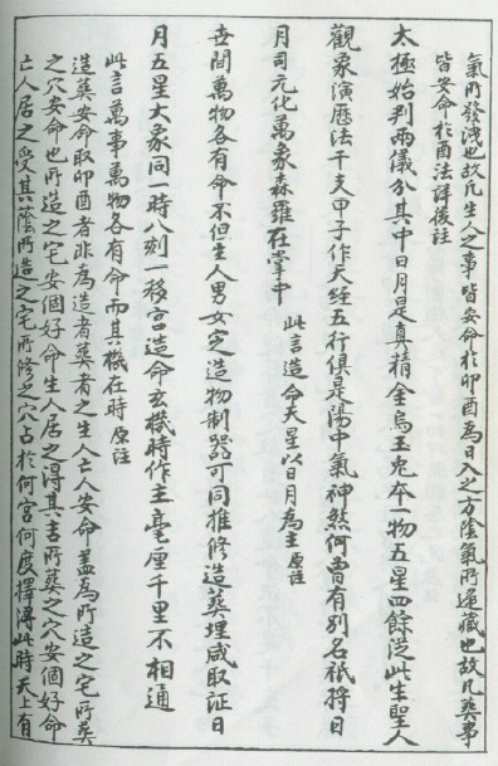 氣所發洩也故凡生人之事皆安命於卯酉為日入之方陰氣所遁藏也故凡葬事
皆安命於酉法詳後註
太極始判兩儀分其中日月是真精金烏玉兔本一物五星四餘從此生聖人
觀象演曆法干支甲子作天經五行俱是陽中氣神煞何曾有別名祇將日
月司元化萬象森羅在掌中 此言造命天星以日月為主原註
世間萬物各有命不但生人男女定造物制器可同推修造葬埋咸取証日
月五星大象同一時八刻一移宮造命玄機時作主毫厘千里不相通
此言萬事萬物各有命而其機在時 原註
造葬安命取卯酉者非為造者葬者之生人亡人安命蓋為所造之宅所葬
之穴安命也所造之宅安個好命生人居之得其吉所葬之穴安個好命
亡人居之受其蔭所造之宅所修之穴占於何宮何度擇得此時天上有